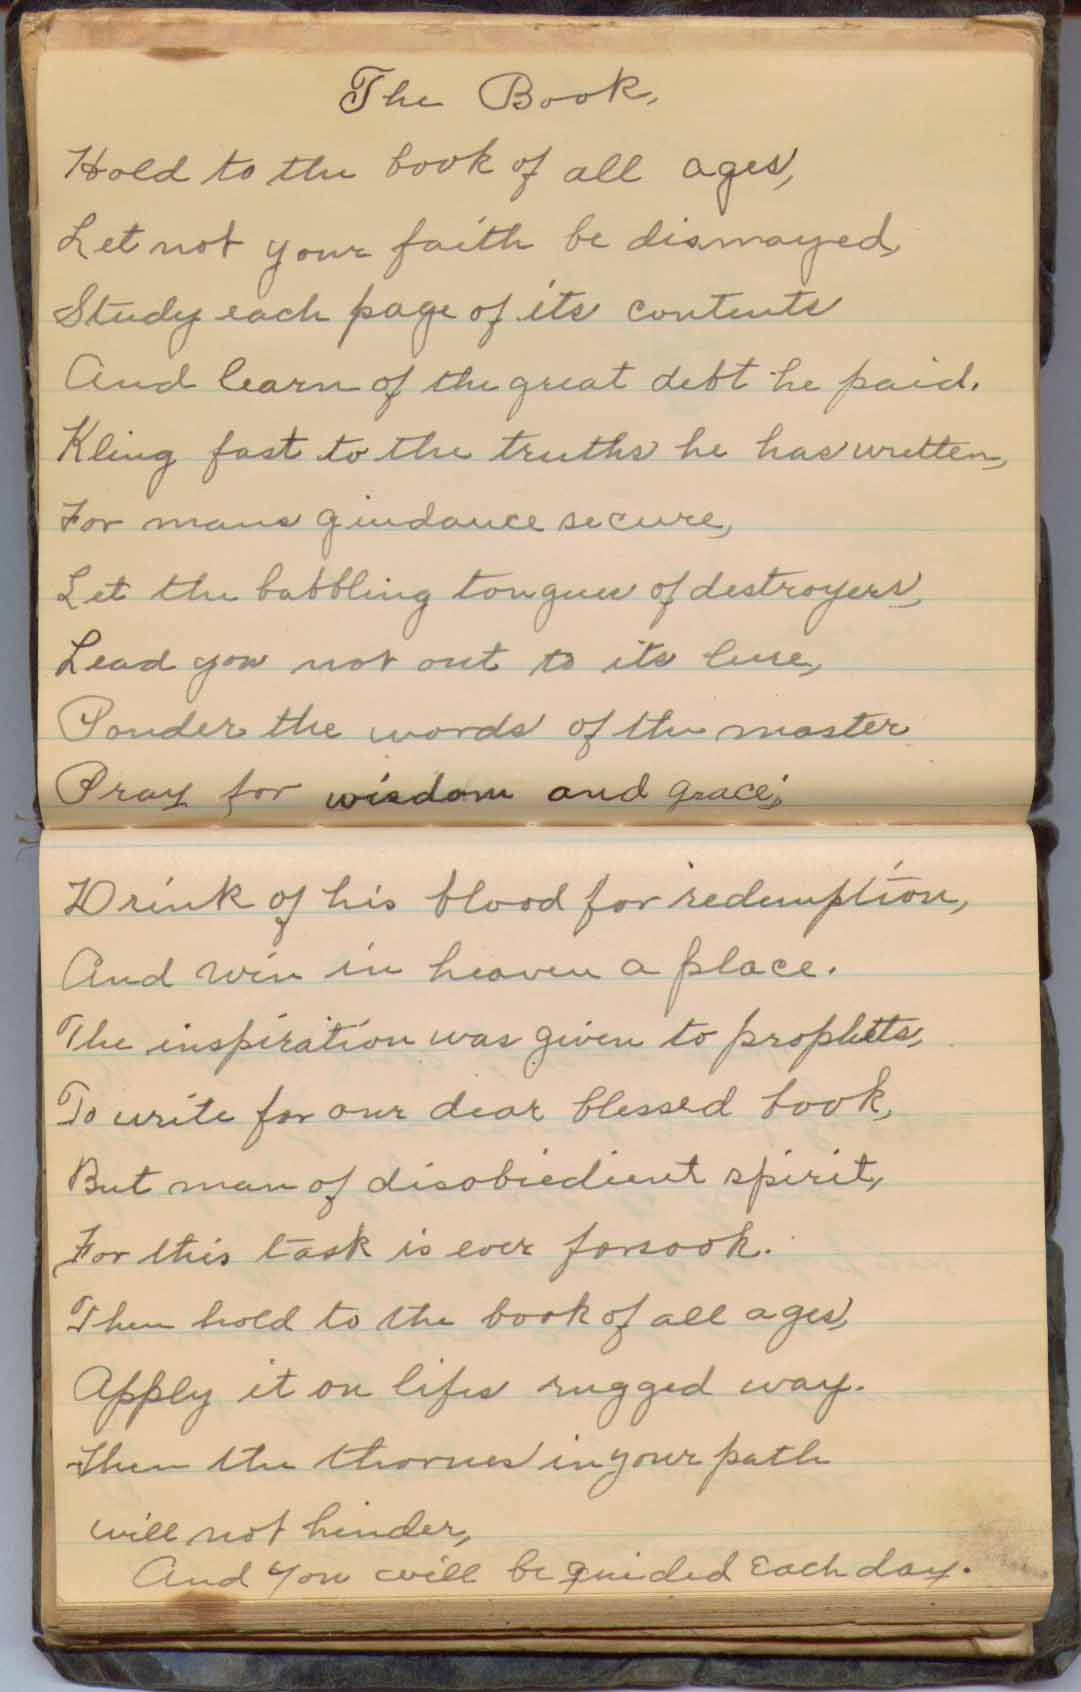 The Book,
Hold to the book of all ages,
Let not your faith be dismayed,
Study each page of its contents
And learn of the great debt he paid.
Kling fast to the truths he has written,
For mans guidance secure,
Let the babbling tongues of destroyers,
Lead you not out to its lure,
Ponder the words of the master
Pray for wisdom and grace;
Drink of his blood for redemption,
And win in heaven a place.
The inspiration was given to prophets,
To write for our dear blessed book,
But man of disobiedient spirit,
For this task is ever forsook.
Then hold to the book of all ages,
Apply it on lifes rugged way.
Then the thornes in your path
will not hinder,
And you will be guided each day.